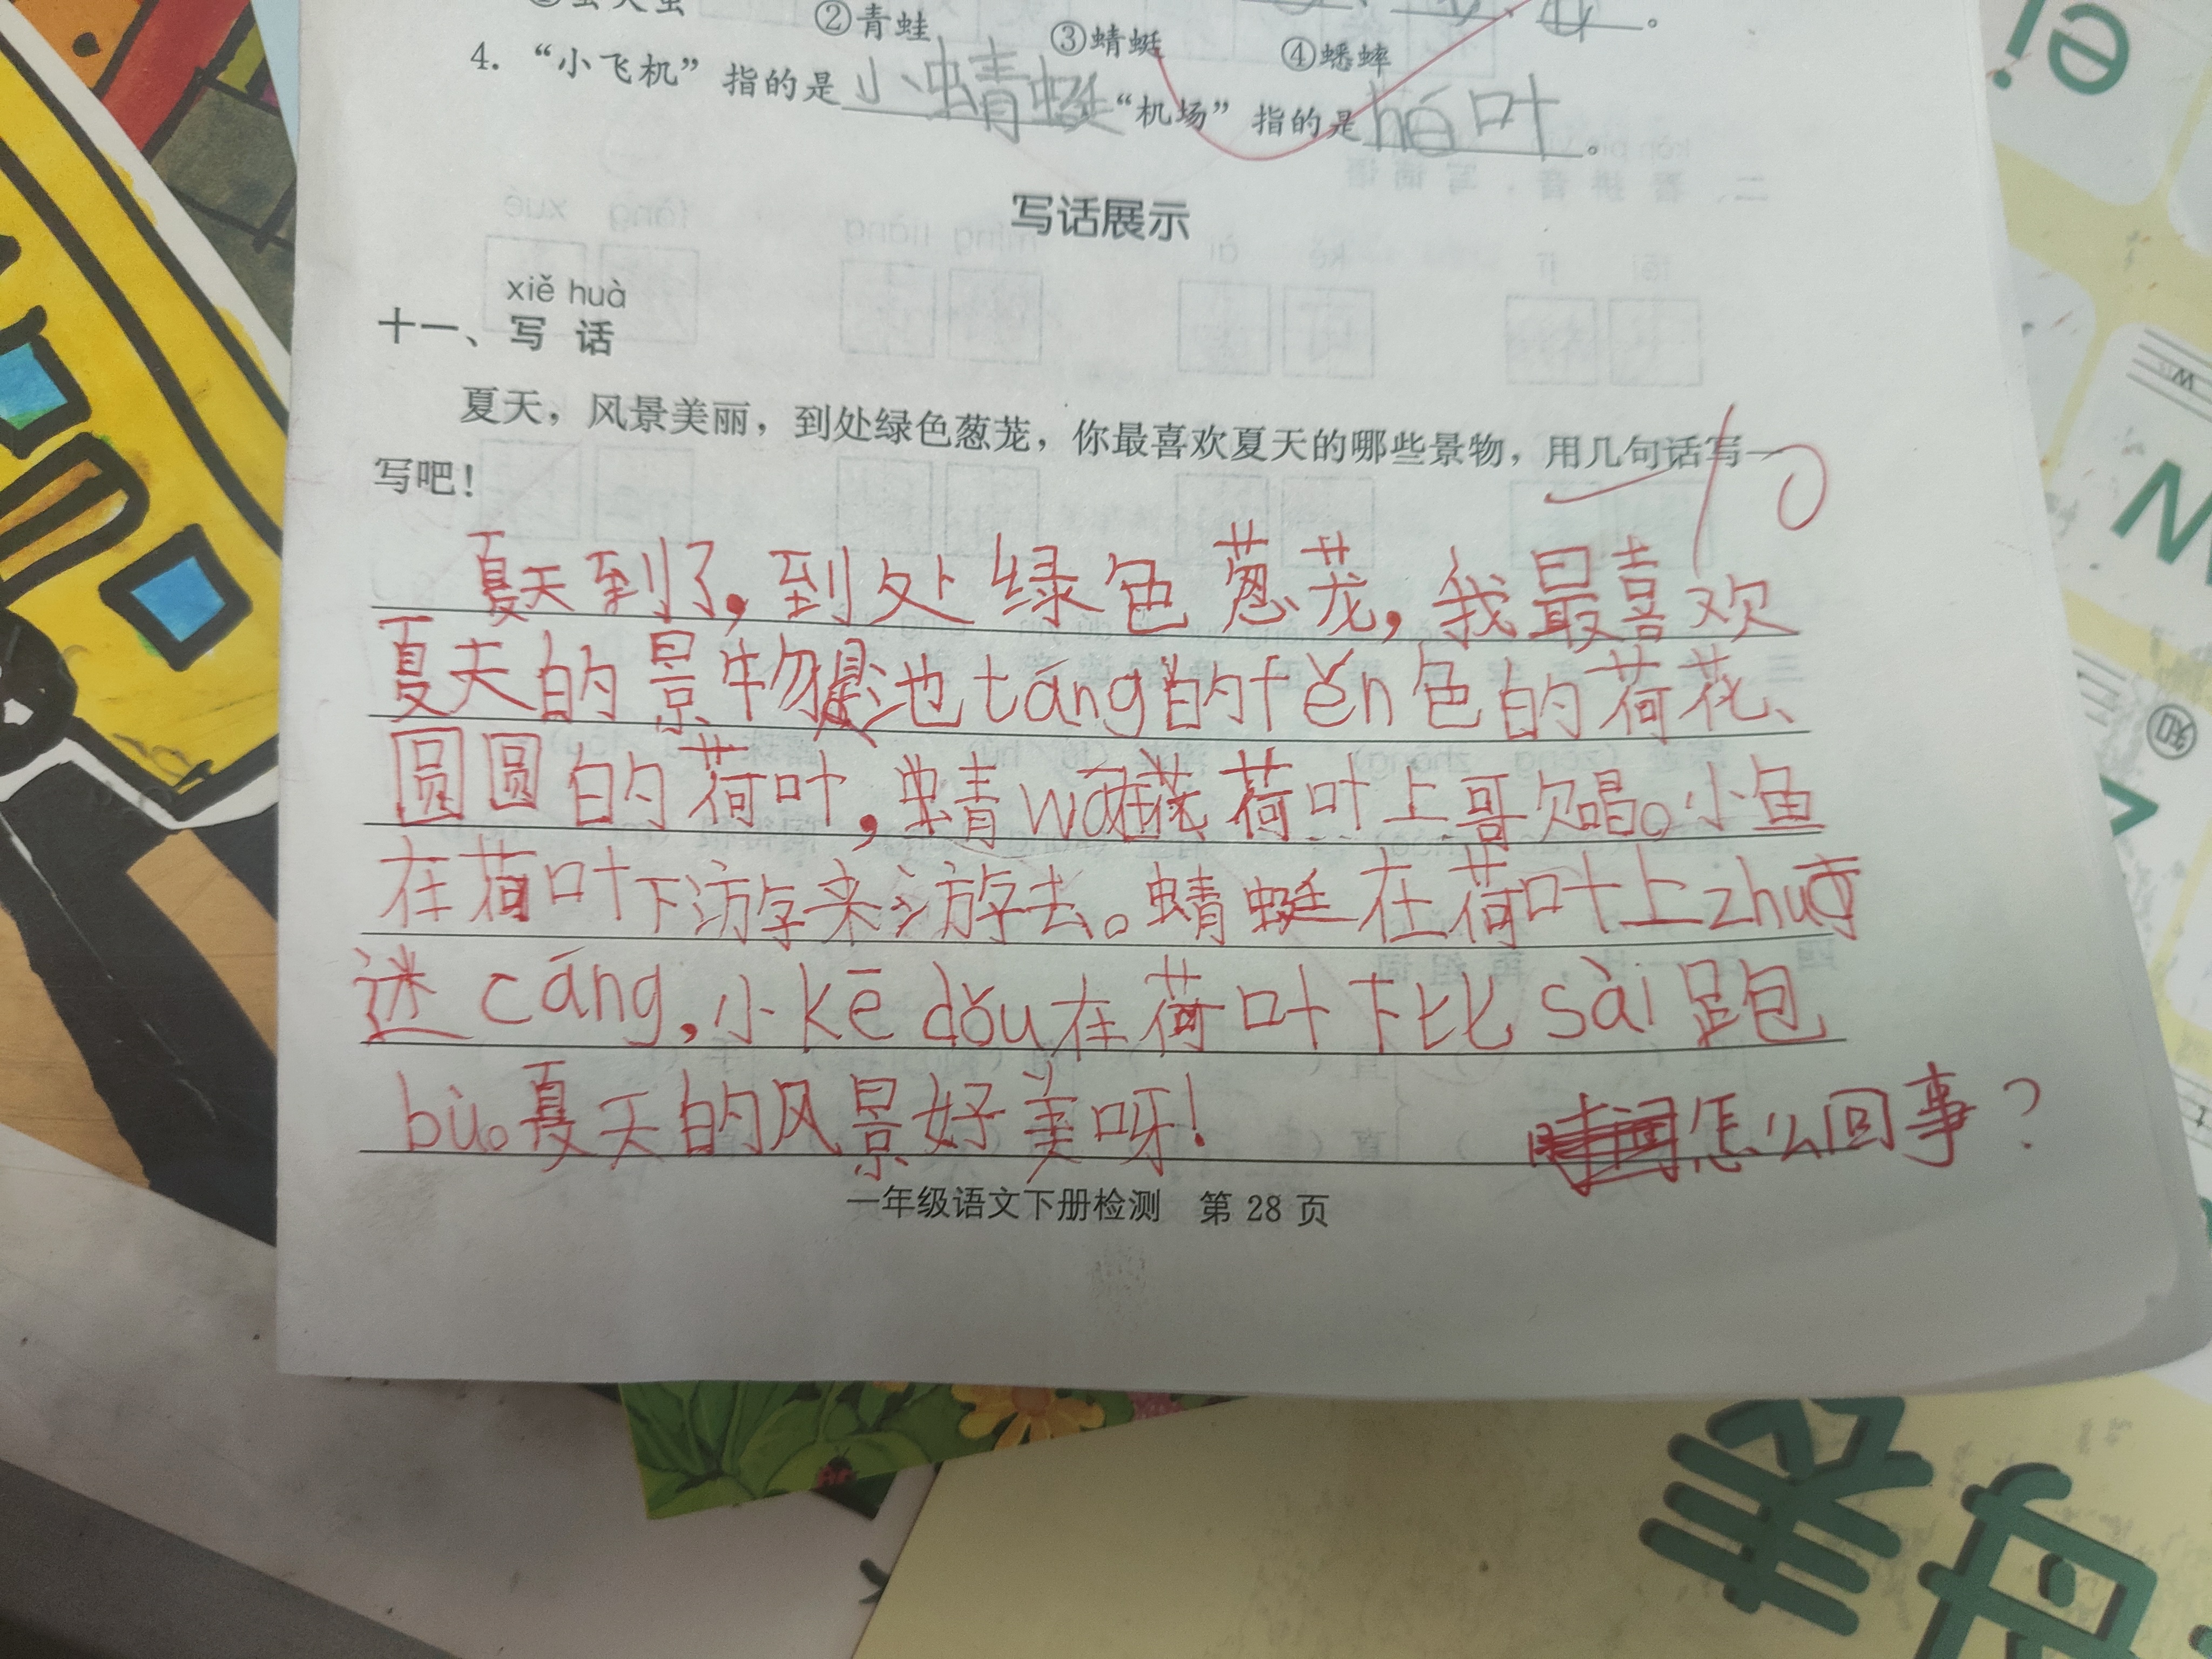 ②青蛙 ③蜻蜓 ④蟋蟀
4. “小飞机”指的是小蜻蜓“机场”指的是hé叶。
写话展示
xiě huà
十一、写话
夏天，风景美丽，到处绿色葱茏，你最喜欢夏天的哪些景物，用几句话写一
写吧！
10
夏天到了，到处绿色葱茏，我最喜欢
夏天的景物是池táng的fěn色的荷花、
圆圆的荷叶，蜻wā在荷叶上哥欠唱。小鱼
在荷叶下游来游去。蜻蜓在荷叶上zhuō
迷cáng，小kē dǒu在荷叶下比sài跑
bù。夏天的风景好美呀！
怎么回事？
一年级语文下册检测 第 28 页
ei
W
N
知